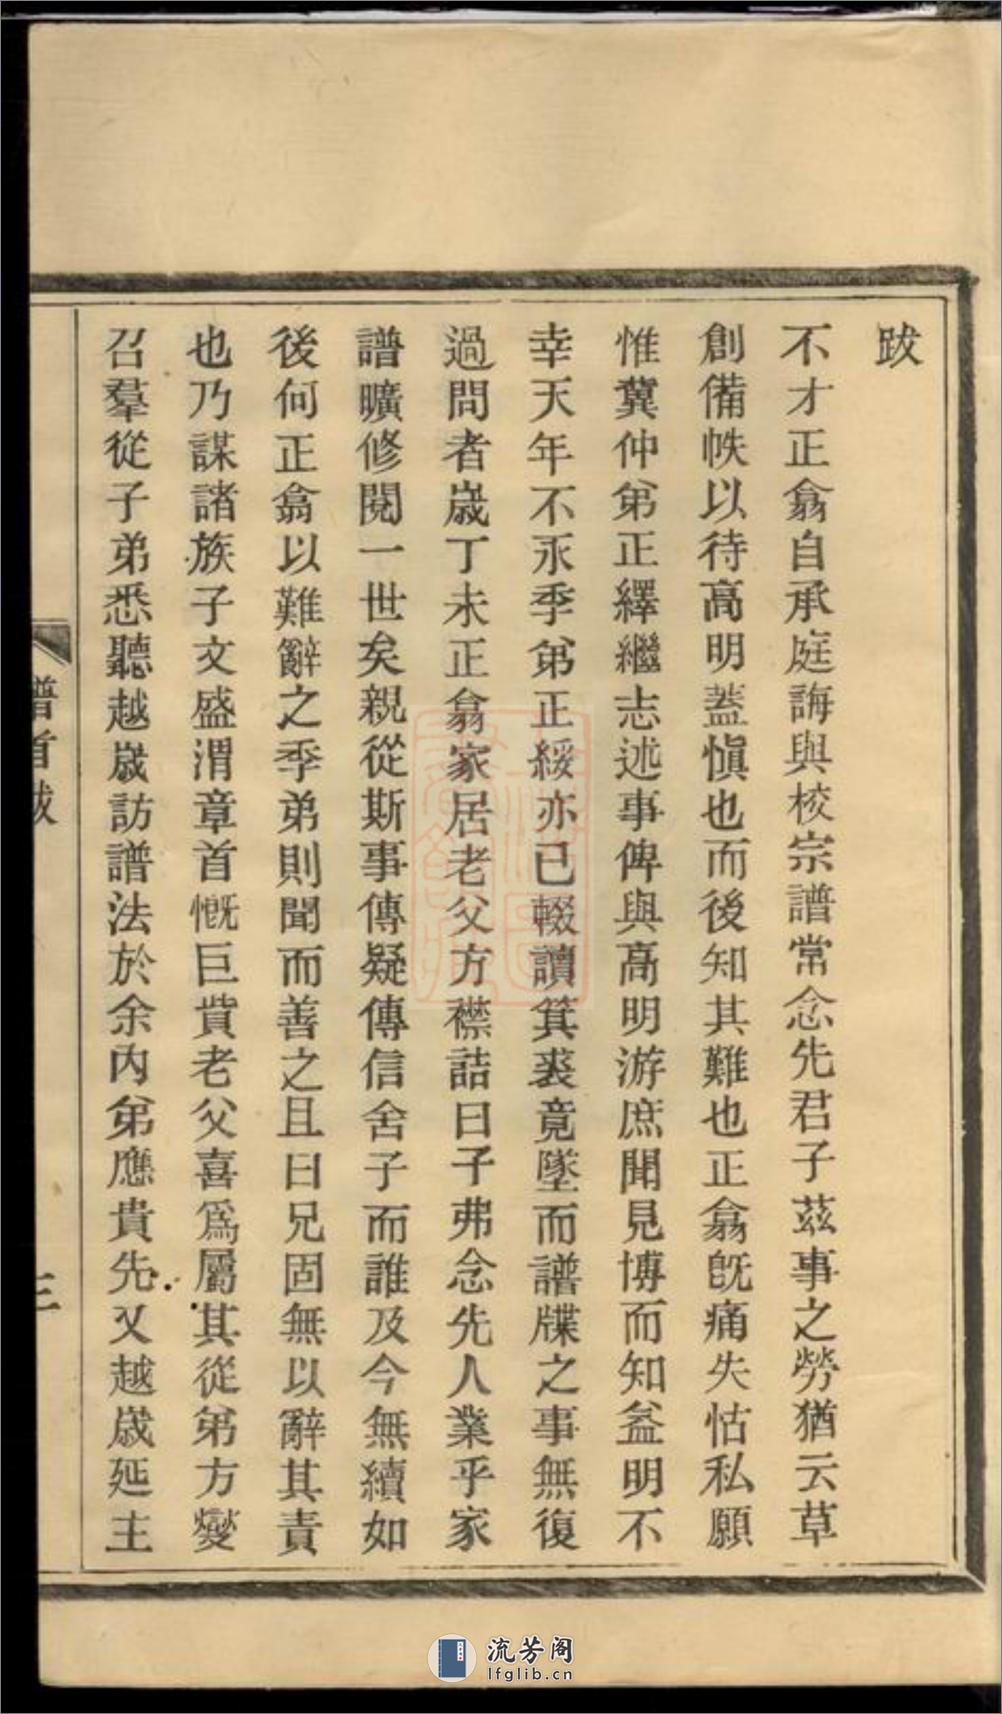 跋
不才正翕自承庭誨與校宗譜常念先君子茲事之勞猶云草
創備帙以待高明蓋愼也而後知其難也正翕旣痛失怙私願
惟冀仲弟正繹繼志述事俾與高明游庶聞見博而知益明不
幸天年不永季弟正綏亦已輟讀箕裘竟墜而譜牒之事無復
過問者歲丁未正翕家居老父方襟詰曰子弗念先人業乎家
譜曠修閱一世矣親從斯事傳疑傳信舍子而誰及今無續如
後何正翕以難辭之季弟則聞而善之且曰兄固無以辭其責
也乃謀諸族子文盛渭章首慨巨貲老父喜爲屬其從弟方燮
召羣從子弟悉聽越歲訪譜法於余內弟應貴先又越歲延主
譜首跋
三
流芳阁
lfglib.cn